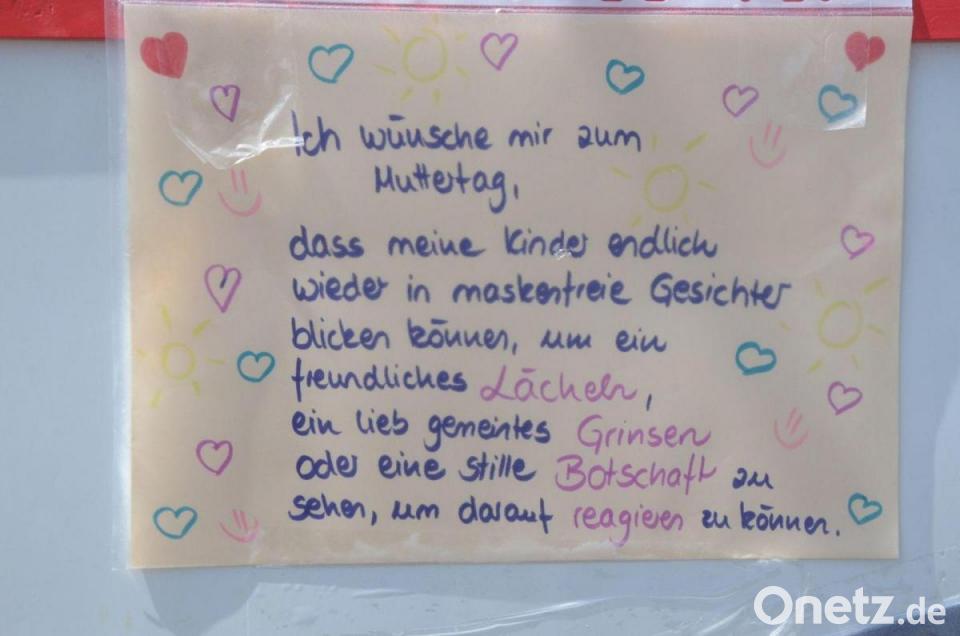 Ich wünsche mir zum
Muttertag,
dass meine Kinder endlich
wieder in maskenfreie Gesichter
blicken können, um ein
freundliches Lächeln,
ein lieb gemeintes Grinsen
oder eine stille Botschaft zu
sehen, um darauf reagieren zu können.
Onetz.de